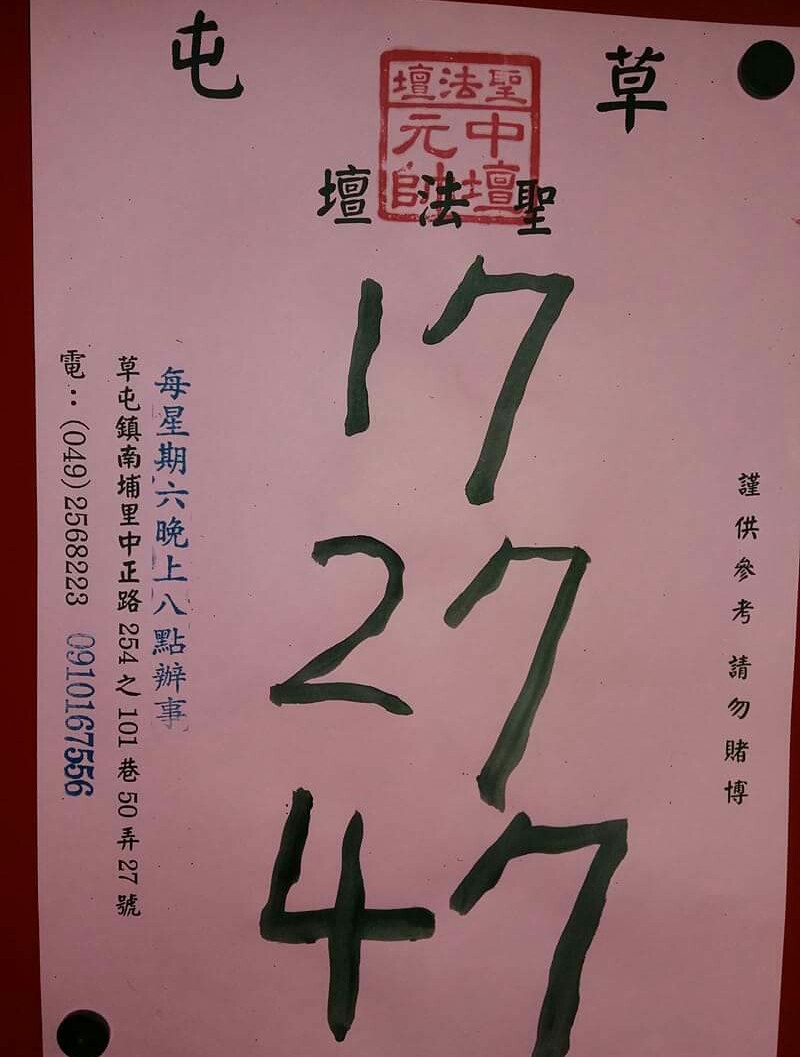 草屯
聖法壇
中壇
元帥
聖法壇
17
27
47
謹供參考 請勿賭博
每星期六晚上八點辦事
草屯鎮南埔里中正路254之101巷50弄27號
電:(049)2568223 0910167556